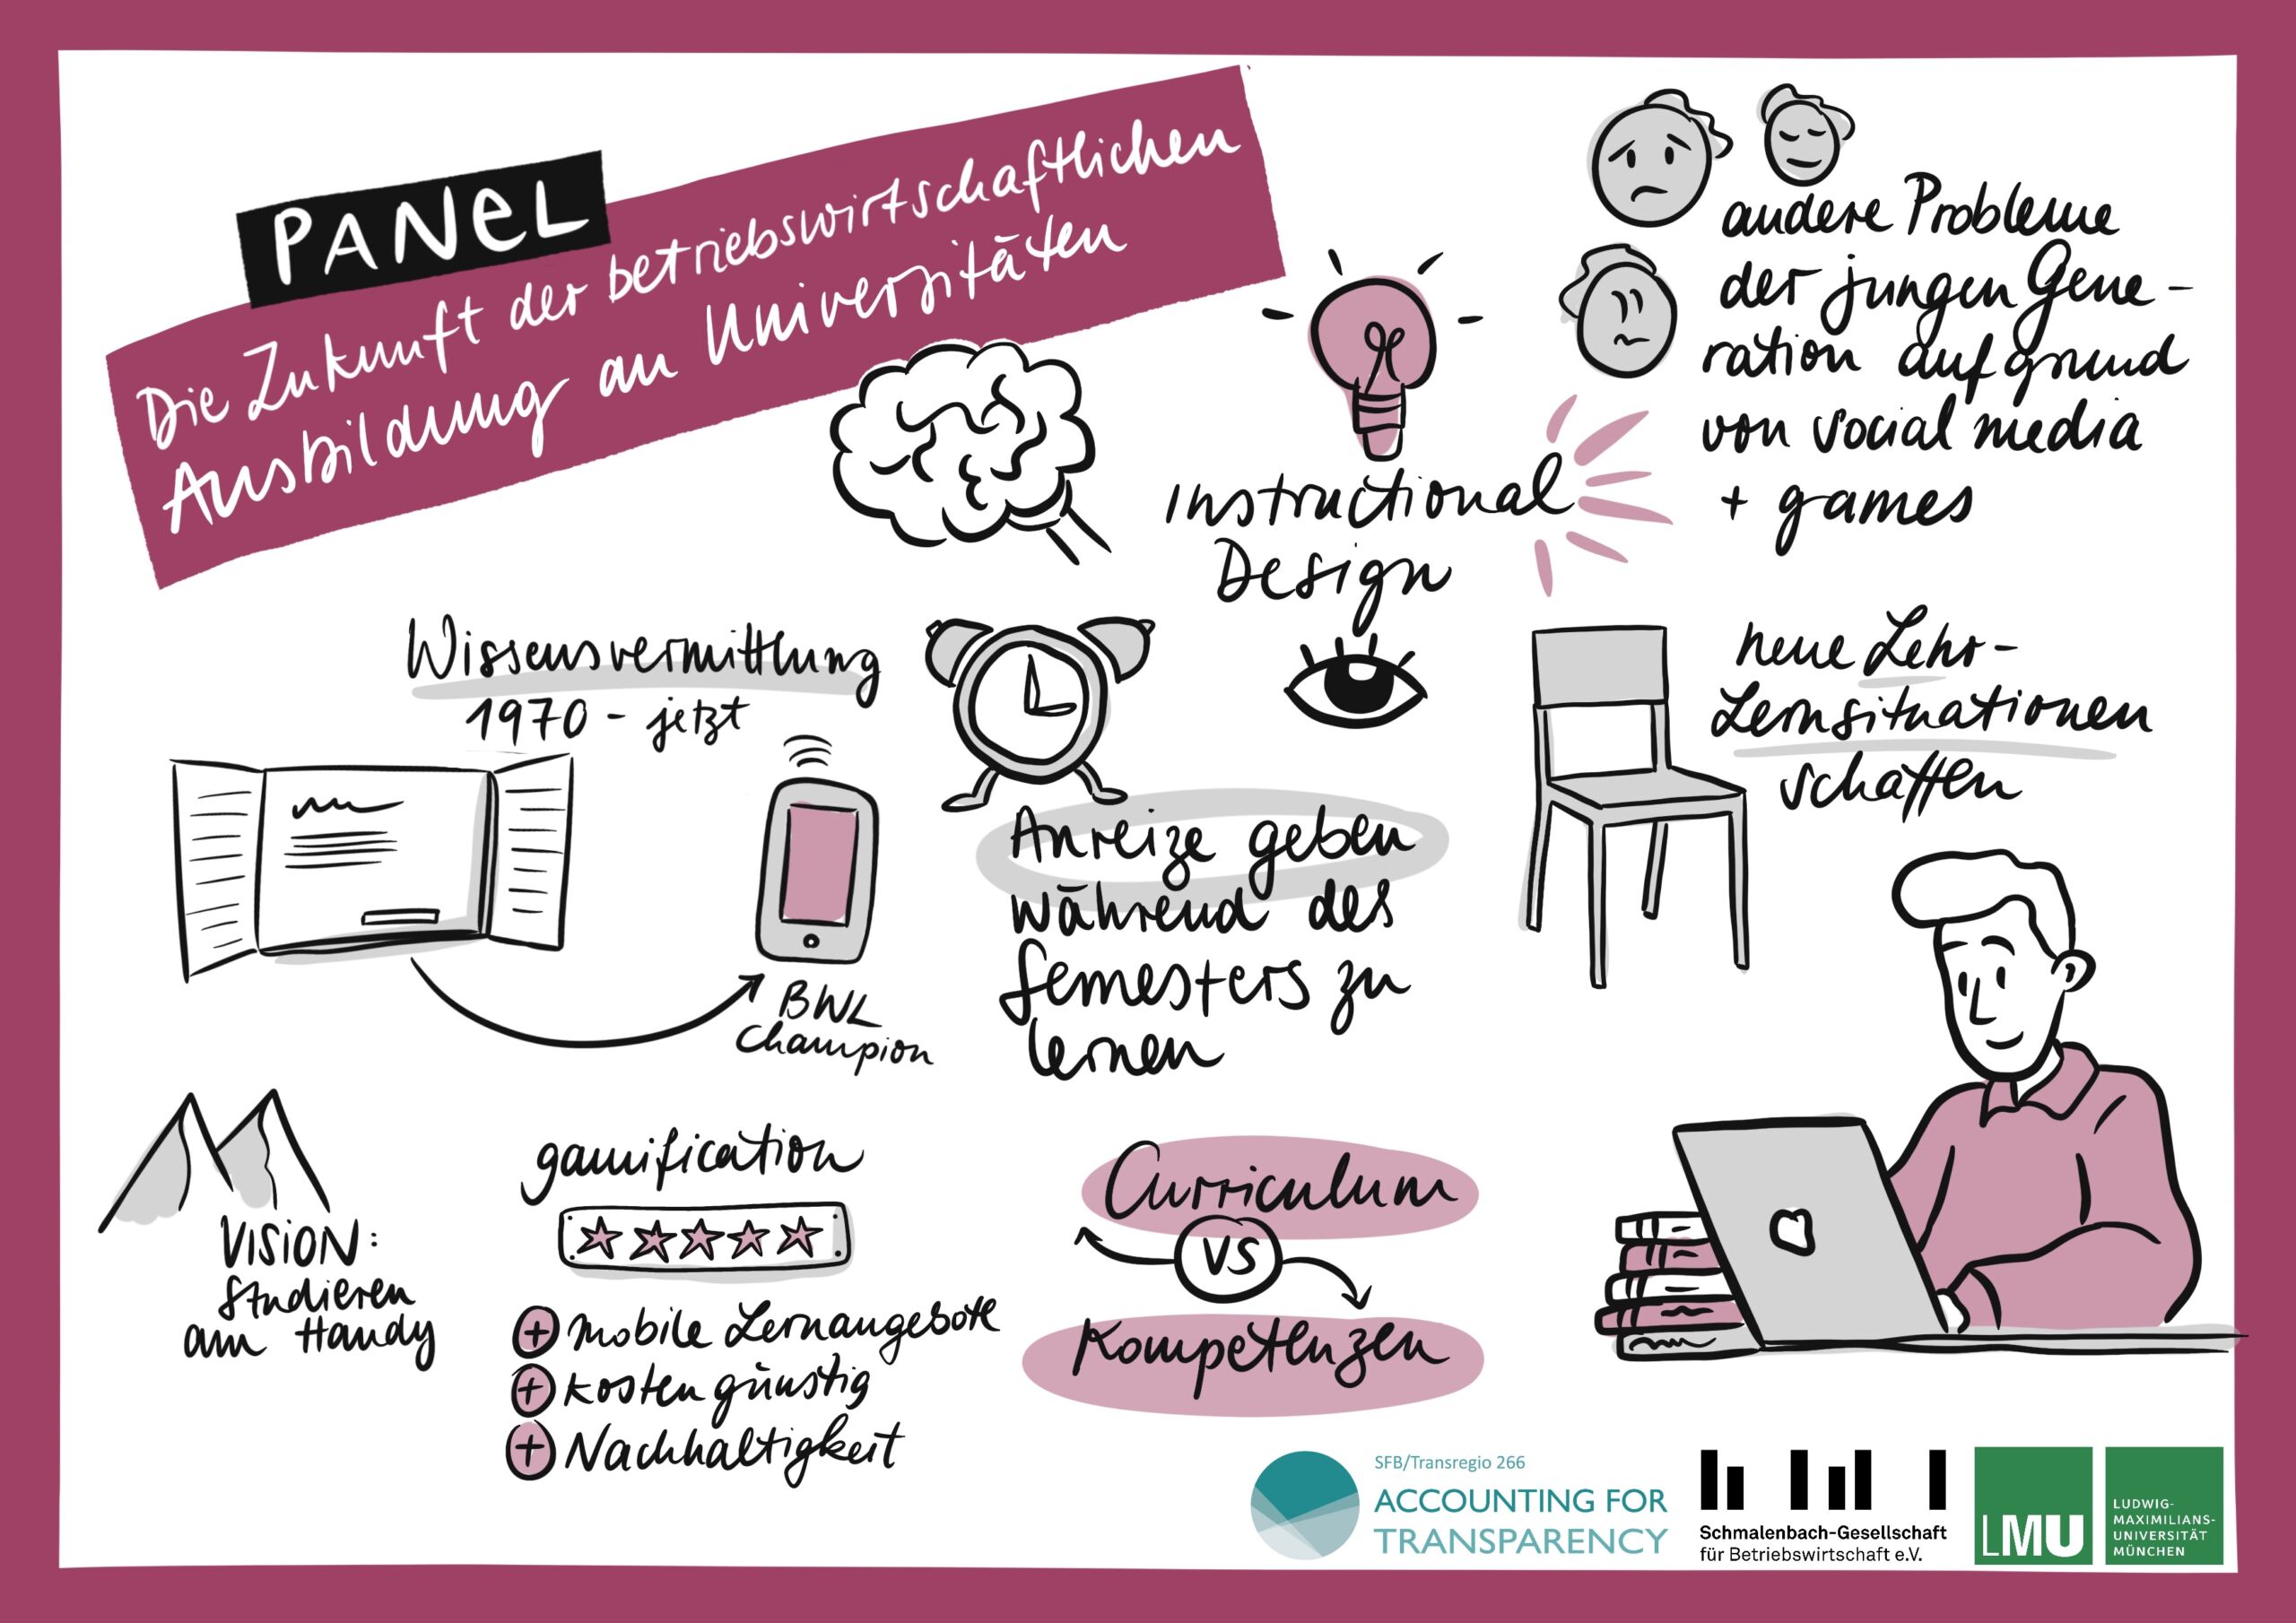 PANEL
Die Zukunft der betriebswirtschaftlichen
Ausbildung an Universitäten
andere Probleme
der jungen Gene-
ration aufgrund
von social media
+ games
Instructional
Design
Wissensvermittlung
1970 - jetzt
BWL
Champion
Anreize geben
während des
Semesters zu
lernen
neue Lehr-
Lernsituationen
schaffen
VISION:
Studieren
am Handy
gamification
+ mobile Lernangebote
+ kostengünstig
+ Nachhaltigkeit
Curriculum
VS
Kompetenzen
SFB/Transregio 266
ACCOUNTING FOR
TRANSPARENCY
Schmalenbach-Gesellschaft
für Betriebswirtschaft e.V.
LMU
LUDWIG-
MAXIMILIANS-
UNIVERSITÄT
MÜNCHEN